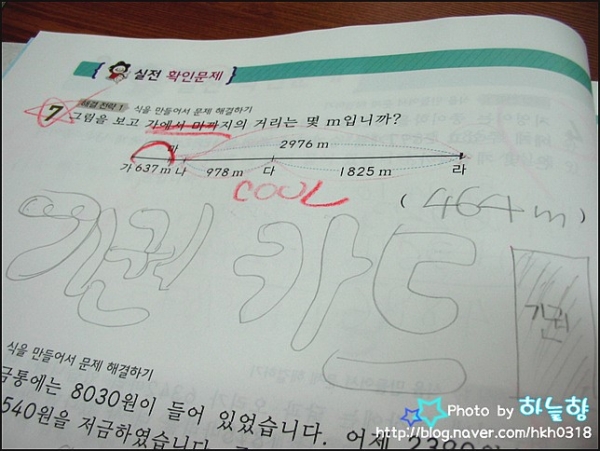 실전 확인문제
7 해결 전략 1 식을 만들어서 문제 해결하기
그림을 보고 가에서 마까지의 거리는 몇 m입니까?
마 2976 m
가 637 m 나 978 m 다 1825 m 라
COOL
( 464 m )
기권 카드
기권
식을 만들어서 문제 해결하기
금통에는 8030원이 들어 있었습니다. 어제 2380원
540원을 저금하였습니다.
Photo by 하늘향
http://blog.naver.com/hkh0318